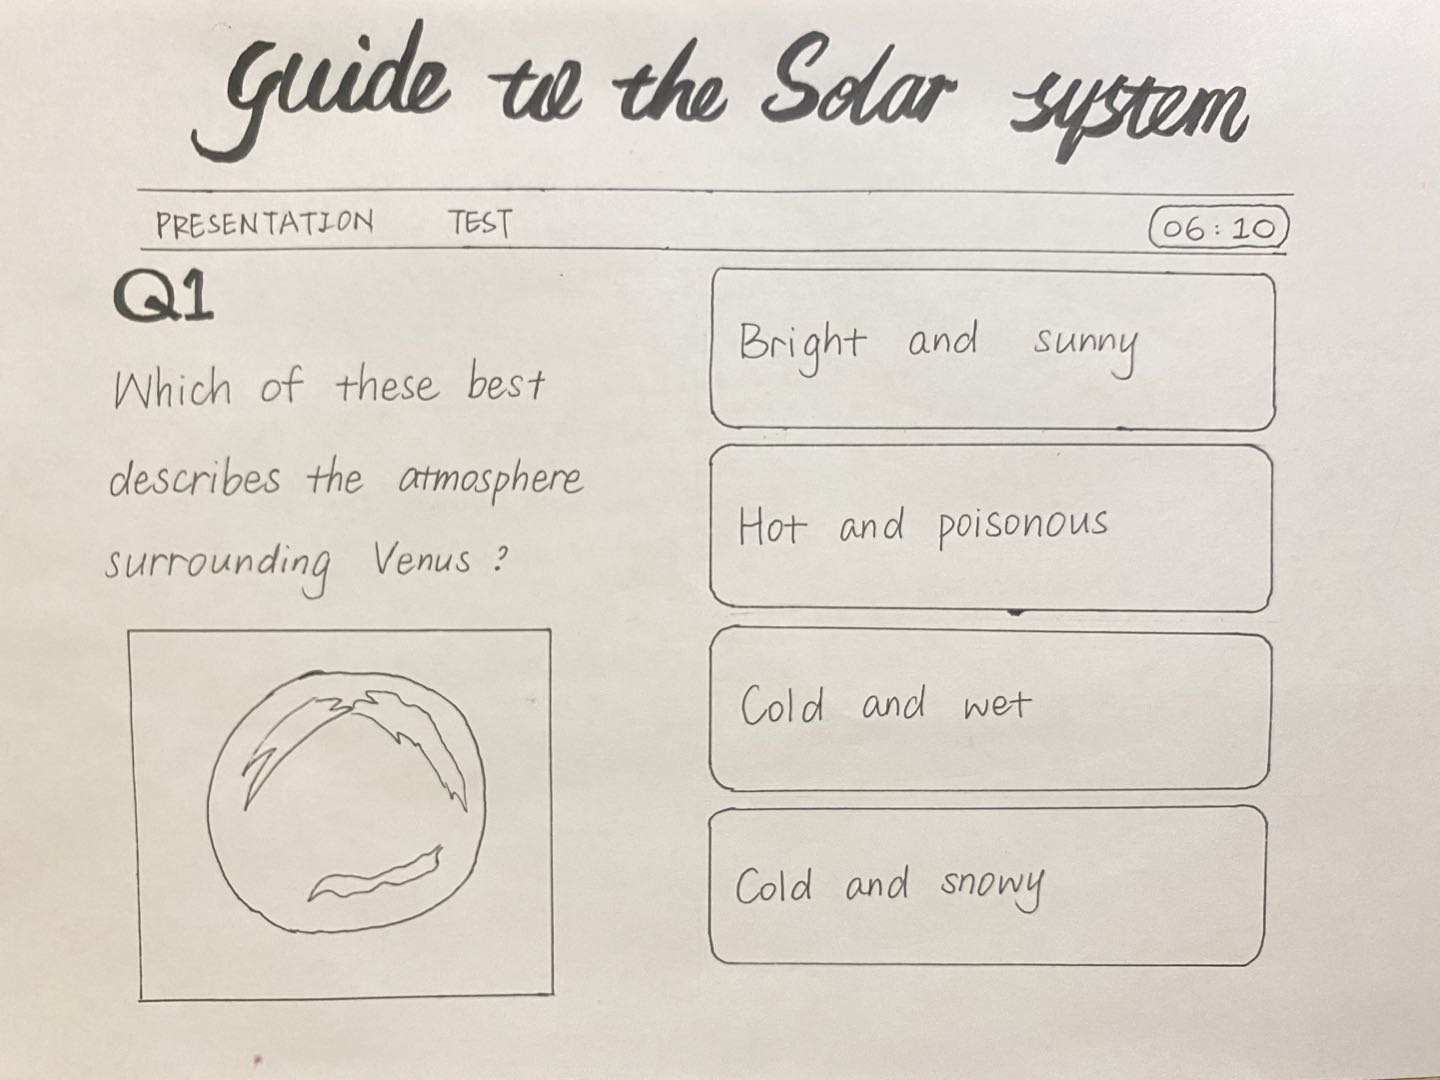 Guide to the Solar system
PRESENTATION TEST 06:10
Q1
Which of these best
describes the atmosphere
surrounding Venus ?
Bright and sunny
Hot and poisonous
Cold and wet
Cold and snowy